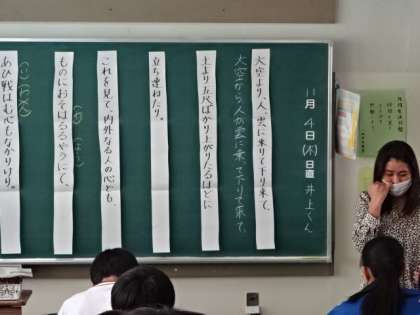 11月4日(木)日直 井上くん
大空より、人、雲に乗りて下り来て、
大空から人が雲に乗って下りて来て、
土より五尺ばかり上がりたるほどに、
立ち連ねたり。
これを見て、内外なる人の心ども、
ものにおそはるるやうにて、
あひ戦はむ心もなかりけり。